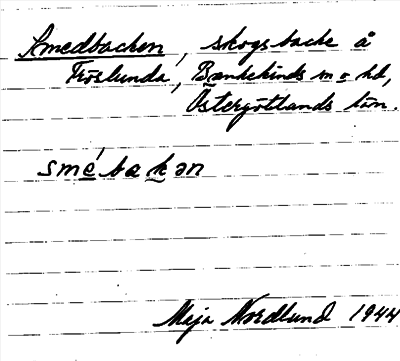 Smedbacken, skogsbacke å
Fröslunda, Bankekinds sn o hd,
Östergötlands län.
smébakən
Maja Nordlund 1944